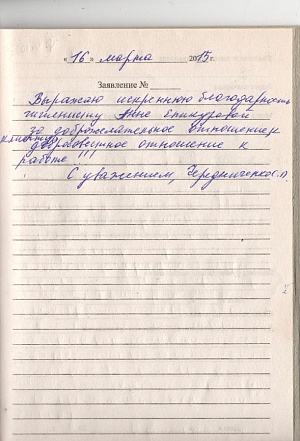 « 16 » марта 2015 г.
Заявление №
Выражаю искреннюю благодарность
Анне Епикуровой
за доброжелательное отношение к
клиенту,
добросовестное отношение к
работе !!!
С уважением, Чередниченко С.А.